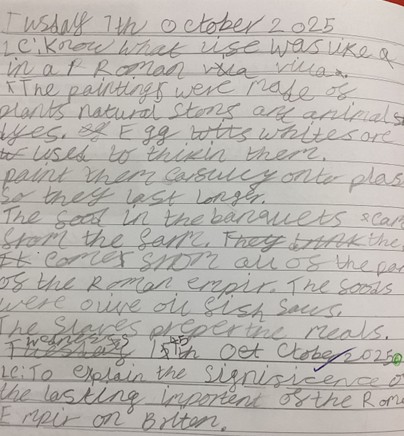 Tusday 7th October 2025
LC: Know what use was like a
in a P Roman via villa.
The paintings were made of
plants natural stons and animals
dyes. Egg whites are
used to thikin them.
paint them carfuly onto plas
So they last longer.
The food in the banquets cam
from the farm. They the
It comes from all of the par
of the Roman empir. The foods
were olive oil fish saus.
The Slaves preper the meals.
Wednesday 15th Octctober 2025
LC: To explain the significence o
the lasting importent of the Roma
Empir on Briten.